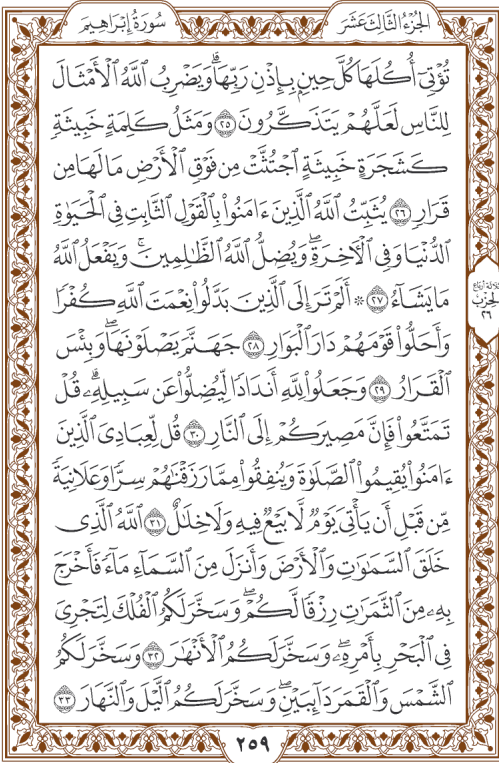 الجزء الثالث عشر
سورة إبراهيم
تُؤْتِىٓ أُكُلَهَا كُلَّ حِينٍۭ بِإِذْنِ رَبِّهَاۗ وَيَضْرِبُ ٱللَّهُ ٱلْأَمْثَالَ
لِلنَّاسِ لَعَلَّهُمْ يَتَذَكَّرُونَ ٢٥ وَمَثَلُ كَلِمَةٍ خَبِيثَةٖ
كَشَجَرَةٍ خَبِيثَةٍ ٱجْتُثَّتْ مِن فَوْقِ ٱلْأَرْضِ مَا لَهَا مِن
قَرَارٖ ٢٦ يُثَبِّتُ ٱللَّهُ ٱلَّذِينَ ءَامَنُوا۟ بِٱلْقَوْلِ ٱلثَّابِتِ فِى ٱلْحَيَوٰةِ
ٱلدُّنْيَا وَفِى ٱلْأَخِرَةِۖ وَيُضِلُّ ٱللَّهُ ٱلظَّٰلِمِينَۚ وَيَفْعَلُ ٱللَّهُ
مَا يَشَآءُ ٢٧ ۞ أَلَمْ تَرَ إِلَى ٱلَّذِينَ بَدَّلُوا۟ نِعْمَتَ ٱللَّهِ كُفْرٗا
وَأَحَلُّوا۟ قَوْمَهُمْ دَارَ ٱلْبَوَارِ ٢٨ جَهَنَّمَ يَصْلَوْنَهَاۖ وَبِئْسَ
ٱلْقَرَارُ ٢٩ وَجَعَلُوا۟ لِلَّهِ أَندَادٗا لِّيُضِلُّوا۟ عَن سَبِيلِهِۦۗ قُلْ
تَمَتَّعُوا۟ فَإِنَّ مَصِيرَكُمْ إِلَى ٱلنَّارِ ٣٠ قُل لِّعِبَادِىَ ٱلَّذِينَ
ءَامَنُوا۟ يُقِيمُوا۟ ٱلصَّلَوٰةَ وَيُنفِقُوا۟ مِمَّا رَزَقْنَٰهُمْ سِرّٗا وَعَلَانِيَةٗ
مِّن قَبْلِ أَن يَأْتِىَ يَوْمٞ لَّا بَيْعٞ فِيهِ وَلَا خِلَٰلٌ ٣١ ٱللَّهُ ٱلَّذِى
خَلَقَ ٱلسَّمَٰوَٰتِ وَٱلْأَرْضَ وَأَنزَلَ مِنَ ٱلسَّمَآءِ مَآءٗ فَأَخْرَجَ
بِهِۦ مِنَ ٱلثَّمَرَٰتِ رِزْقٗا لَّكُمْۖ وَسَخَّرَ لَكُمُ ٱلْفُلْكَ لِتَجْرِىَ
فِى ٱلْبَحْرِ بِأَمْرِهِۦۖ وَسَخَّرَ لَكُمُ ٱلْأَنْهَٰرَ ٣٢ وَسَخَّرَ لَكُمُ
ٱلشَّمْسَ وَٱلْقَمَرَ دَآئِبَيْنِۖ وَسَخَّرَ لَكُمُ ٱلَّيْلَ وَٱلنَّهَارَ ٣٣
ثلاثة أرباع
الحزب
٢٦
٢٥٩